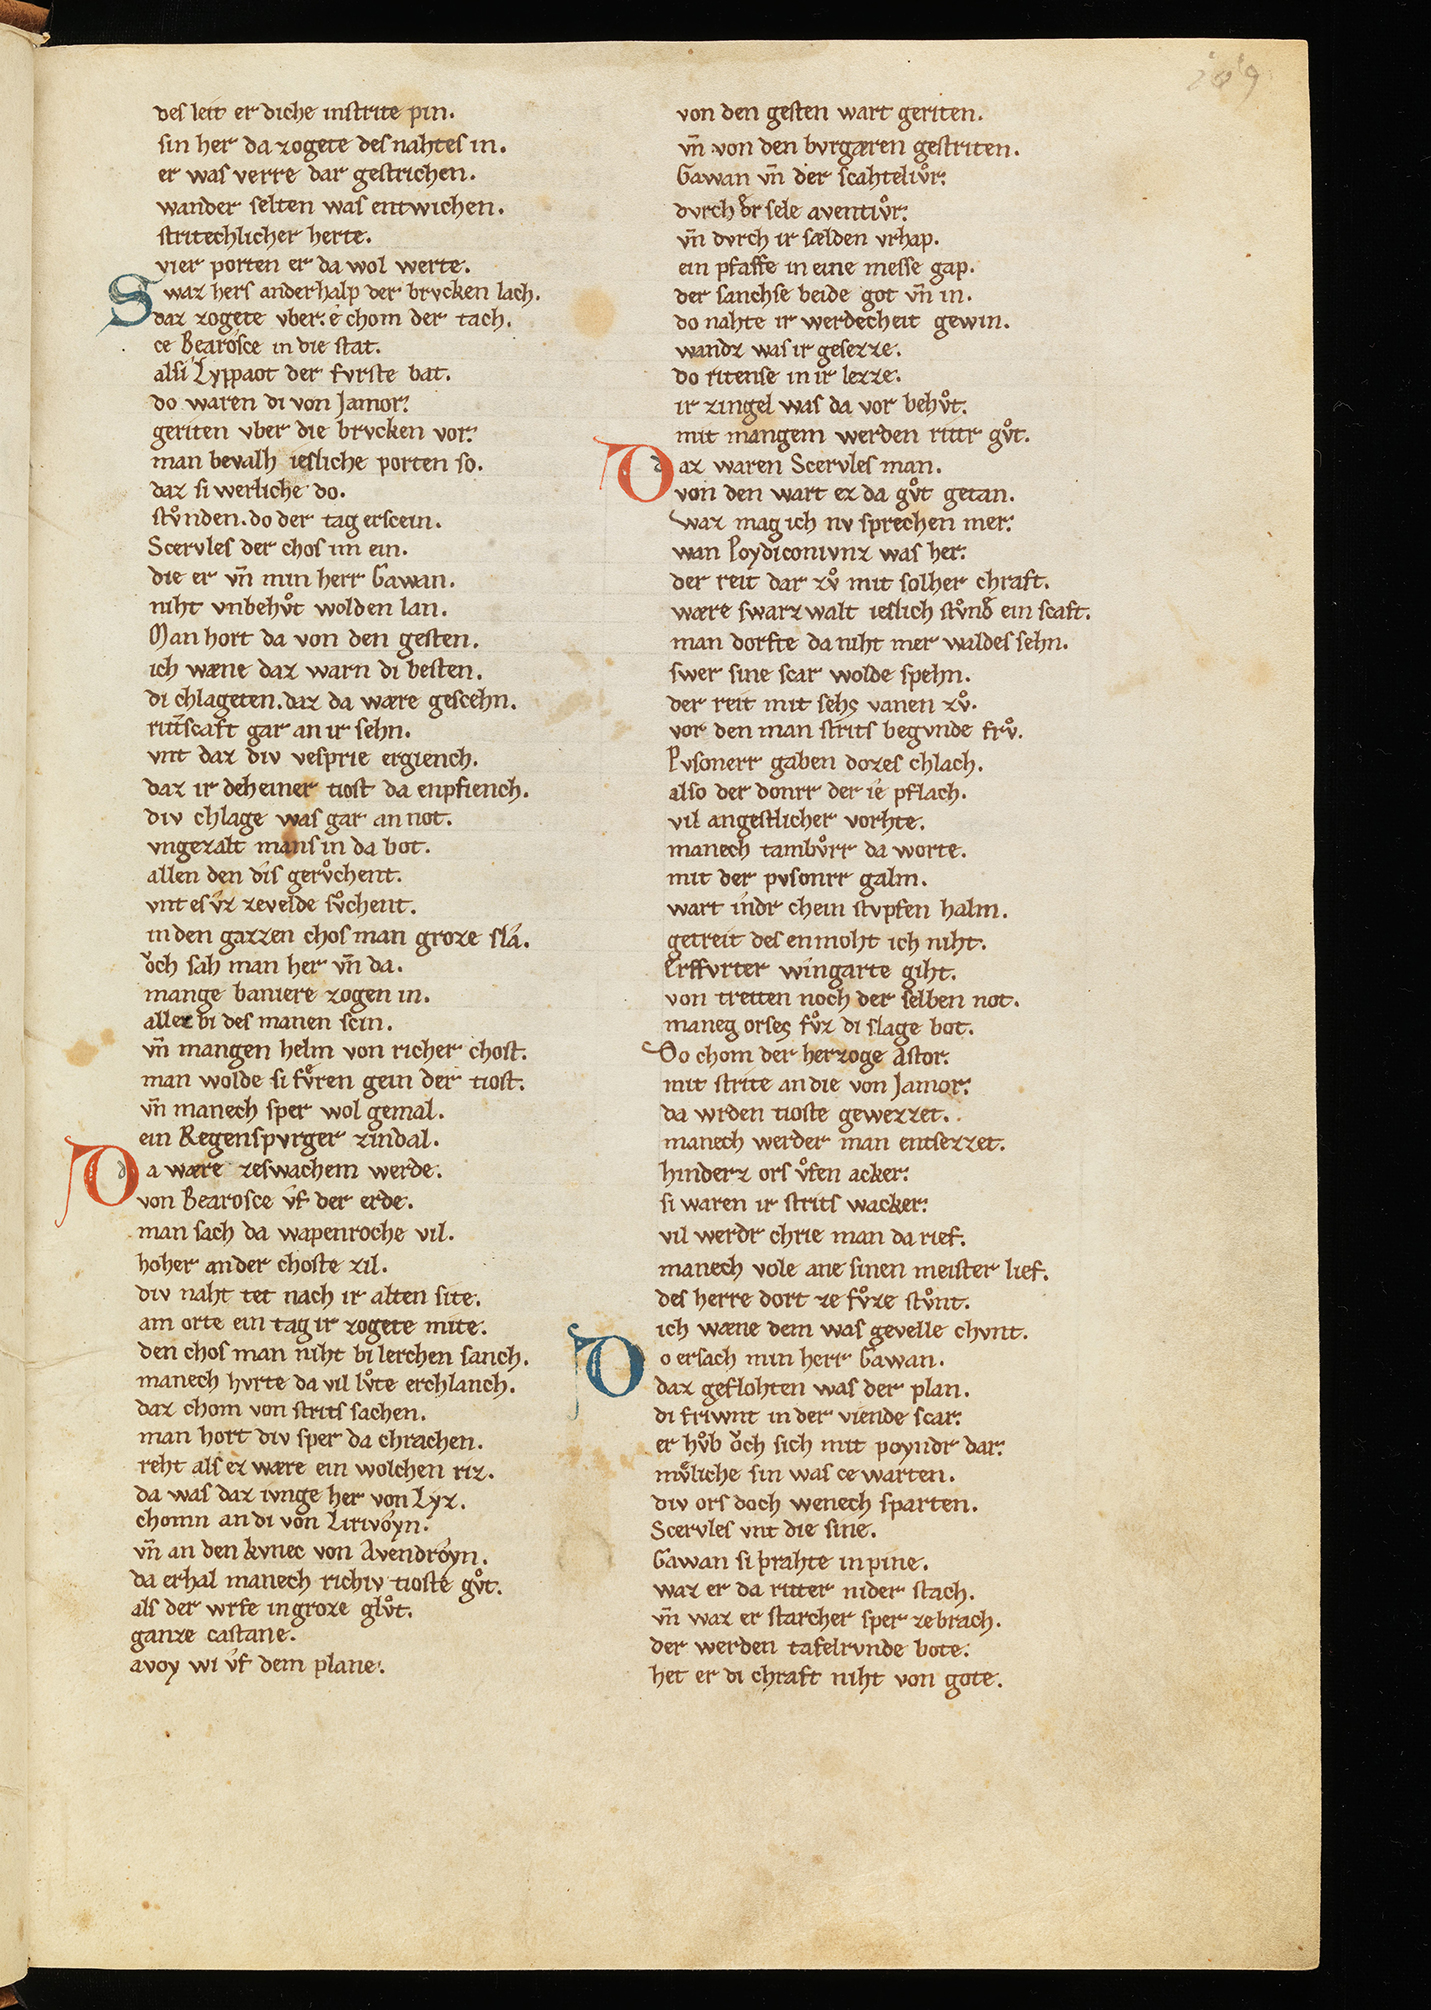 209
des leit er diche instrite pin.
sin her da zogete des nahtes in.
er was verre dar gestrichen.
wander selten was entwichen.
stritechlicher herte.
vier porten er da wol werte.
Swaz hers anderhalp der brvcken lach.
daz zogete vber. é chom der tach.
ce Bearosce in die stat.
alsi Lyppaot der fvrste bat.
do waren di von Jamor.
geriten vber die brvcken vor.
man bevalh iesliche porten so.
daz si werliche do.
stuͦnden. do der tag erscein.
Scervles der chos im ein.
die er vn̄ min herr Gawan.
niht vnbehuͦt wolden lan.
Man hort da von den gesten.
ich wæne daz warn di besten.
di chlageten. daz da wære gescehn.
ritt̄scaft gar an ir sehn.
vnt daz div vesprie ergiench.
daz ir deheiner tiost da enpfiench.
div chlage was gar an not.
vngezalt mans in da bot.
allen den dis geruͦchent.
vnt es v́z zevelde suͦchent.
in den gazzen chos man groze slá.
oͮch sah man her vn̄ da.
mange baniere zogen in.
allez bi des manen scin.
vn̄ mangen helm von richer chost.
man wolde si fuͦren gein der tiost.
vn̄ manech sper wol gemal.
ein Regenspvrger zindal.
Da wære zeswachem werde.
von Bearosce v́f der erde.
man sach da wapenroche vil.
hoher an der choste zil.
div naht tet nach ir alten site.
am orte ein tag ir zogete mite.
den chos man niht bi lerchen sanch.
manech hvrte da vil luͦte erchlanch.
daz chom von strits sachen.
man hort div sper da chrachen.
reht als ez wære ein wolchen riz.
da was daz ivnge her von Lyz.
chomn an di von Lirivóyn.
vn̄ an den kvnec von Avendróyn.
da erhal manech richiv tioste guͦt.
als der wrfe in groze gluͦt.
ganze castane.
avoy wi v́f dem plane.
von den gesten wart geriten.
vn̄ von den bvrgæren gestriten.
Gawan vn̄ der scahteliuͦr.
dvrch d̄r sele aventiuͦr.
vn̄ dvrch ir sælden vrhap.
ein pfaffe in eine messe gap.
der sanchse beide got vn̄ in.
do nahte ir werdecheit gewin.
wandz was ir gesezze.
do ritense in ir lezze.
ir zingel was da vor behuͦt.
mit mangem werden rittr guͦt.
Daz waren Scervles man.
von den wart ez da guͦt getan.
Waz mag ich nv sprechen mer.
wan Poydiconivnz was her.
der reit dar zuͦ mit solher chraft.
wære swarzwalt ieslich stuͦnd̄ ein scaft.
man dorfte da niht mer waldes sehn.
swer sine scar wolde spehn.
der reit mit sehs vanen zuͦ.
vor den man strits begvnde fruͦ.
Pvsonerr gaben dozes chlach.
also der donrr der ié pflach.
vil angestlicher vorhte.
manech tambuͦrr da worte.
mit der pvsonrr galm.
wart indr chein stvpfen halm.
getreit des enmoht ich niht.
Erffvrter wingarte giht.
von tretten noch der selben not.
maneg orses fuͦz di slage bot.
Do chom der herzoge Astor.
mit strite an die von Jamor.
da wrden tioste gewezzet.
manech werder man entsezzet.
hinderz ors uͦfen acker.
si waren ir strits wacker.
vil werdr chrie man da rief.
manech vole ane sinen meister lief.
des herre dort ze fuͦze stuͦnt.
ich wæne dem was gevelle chvnt.
Do ersach min herr Gawan.
daz geflohten was der plan.
di friwnt in der viende scar.
er huͦb oͮch sich mit poyndr dar.
muͤliche sin was ce warten.
div ors doch wenech sparten.
Scervles vnt die sine.
Gawan si prahte in pine.
waz er da ritter nider stach.
vn̄ waz er starcher sper zebrach.
der werden tafelrvnde bote.
het er di chraft niht von gote.